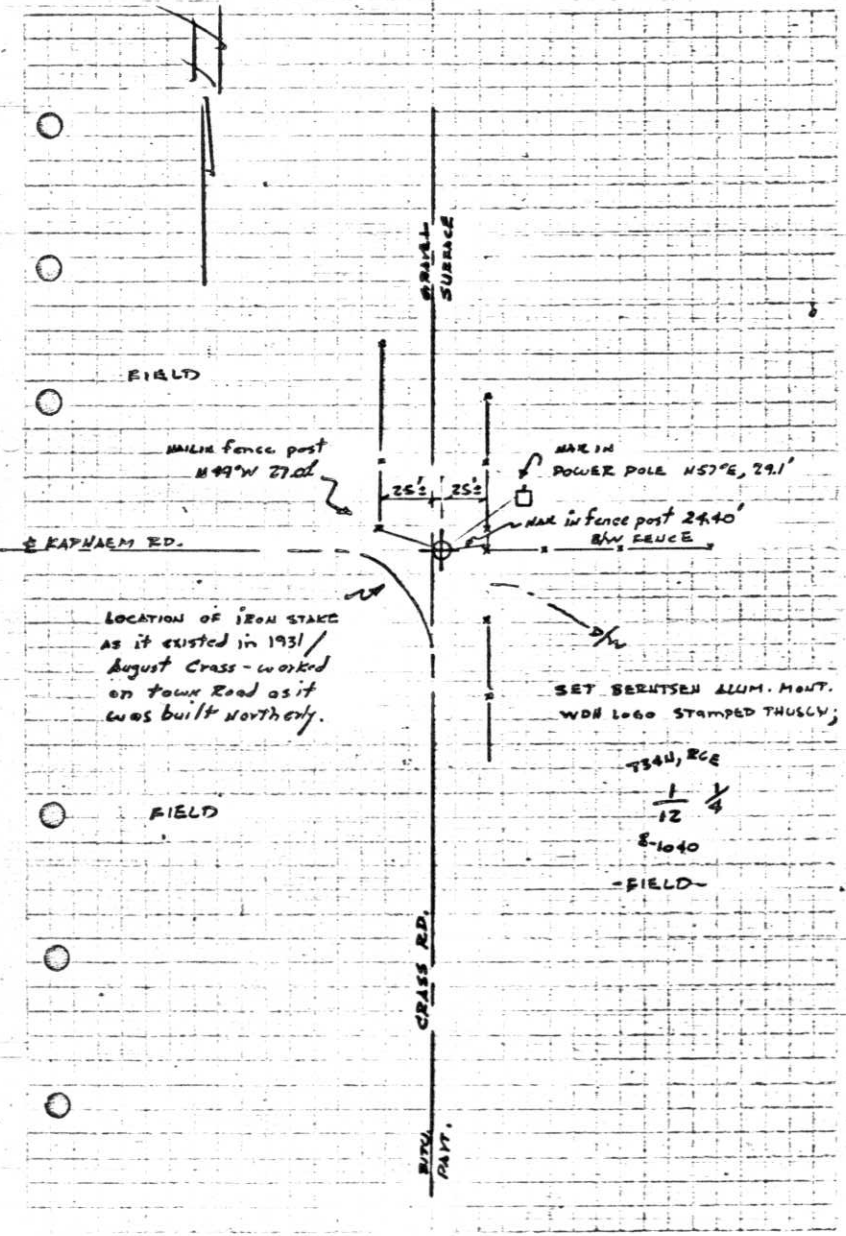 GRAVEL
SURFACE
FIELD
NAIL IN fence post
N 49°W
25'±
25'±
NAIL IN
POWER POLE N57°E, 29.1'
NAIL in fence post 24.40'
B/W FENCE
℄ KAPHAEM RD.
LOCATION OF IRON STAKE
AS it existed in 1931/
August Crass - worked
on town Road as it
was built Northerly.
D/W
SET BERNTSEN ALUM. MONT.
WDH LOGO STAMPED THUSLY;
T34N, R6E
1/12 1/4
S-1040
-FIELD-
FIELD
CRASS RD.
BITU.
PAVT.